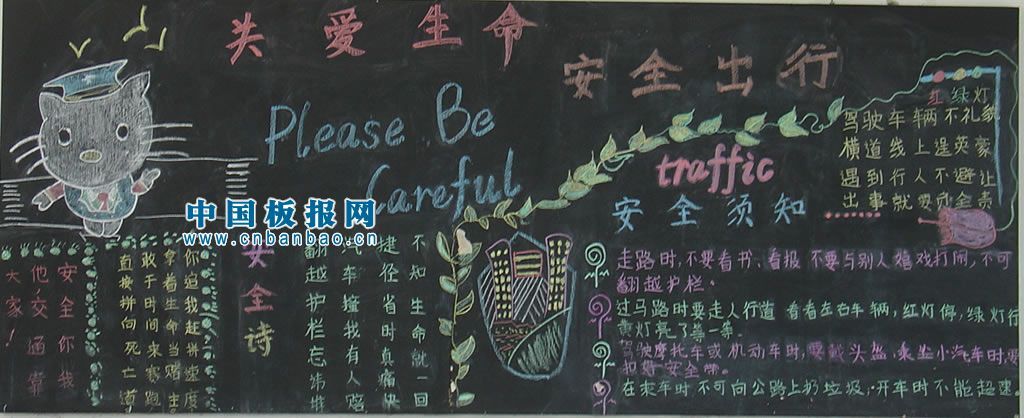 关爱生命
安全出行
Please Be
Careful
中国板报网
www.cnbanbao.cn
红绿灯
驾驶车辆不礼貌
横道线上逞英豪
遇到行人不避让
出事就要负全责
traffic
安全须知
走路时,不要看书、看报 不要与别人嬉戏打闹,不可
翻越护栏。
过马路时要走人行道 看看左右车辆,红灯停,绿灯行
黄灯亮了等一等。
驾驶摩托车或机动车时,要戴头盔,乘坐小汽车时,要
扣好安全带。
在乘车时不可向公路上扔垃圾,开车时不能超速。
不知生命就一回
捷径省时真痛快
汽车撞我有人赔
翻越护栏忘
安全诗
你追我赶拼速度
拿着生命当赌注
敢于时间来赛跑
直接拼向死亡道
安全你我
他交通靠
大家!